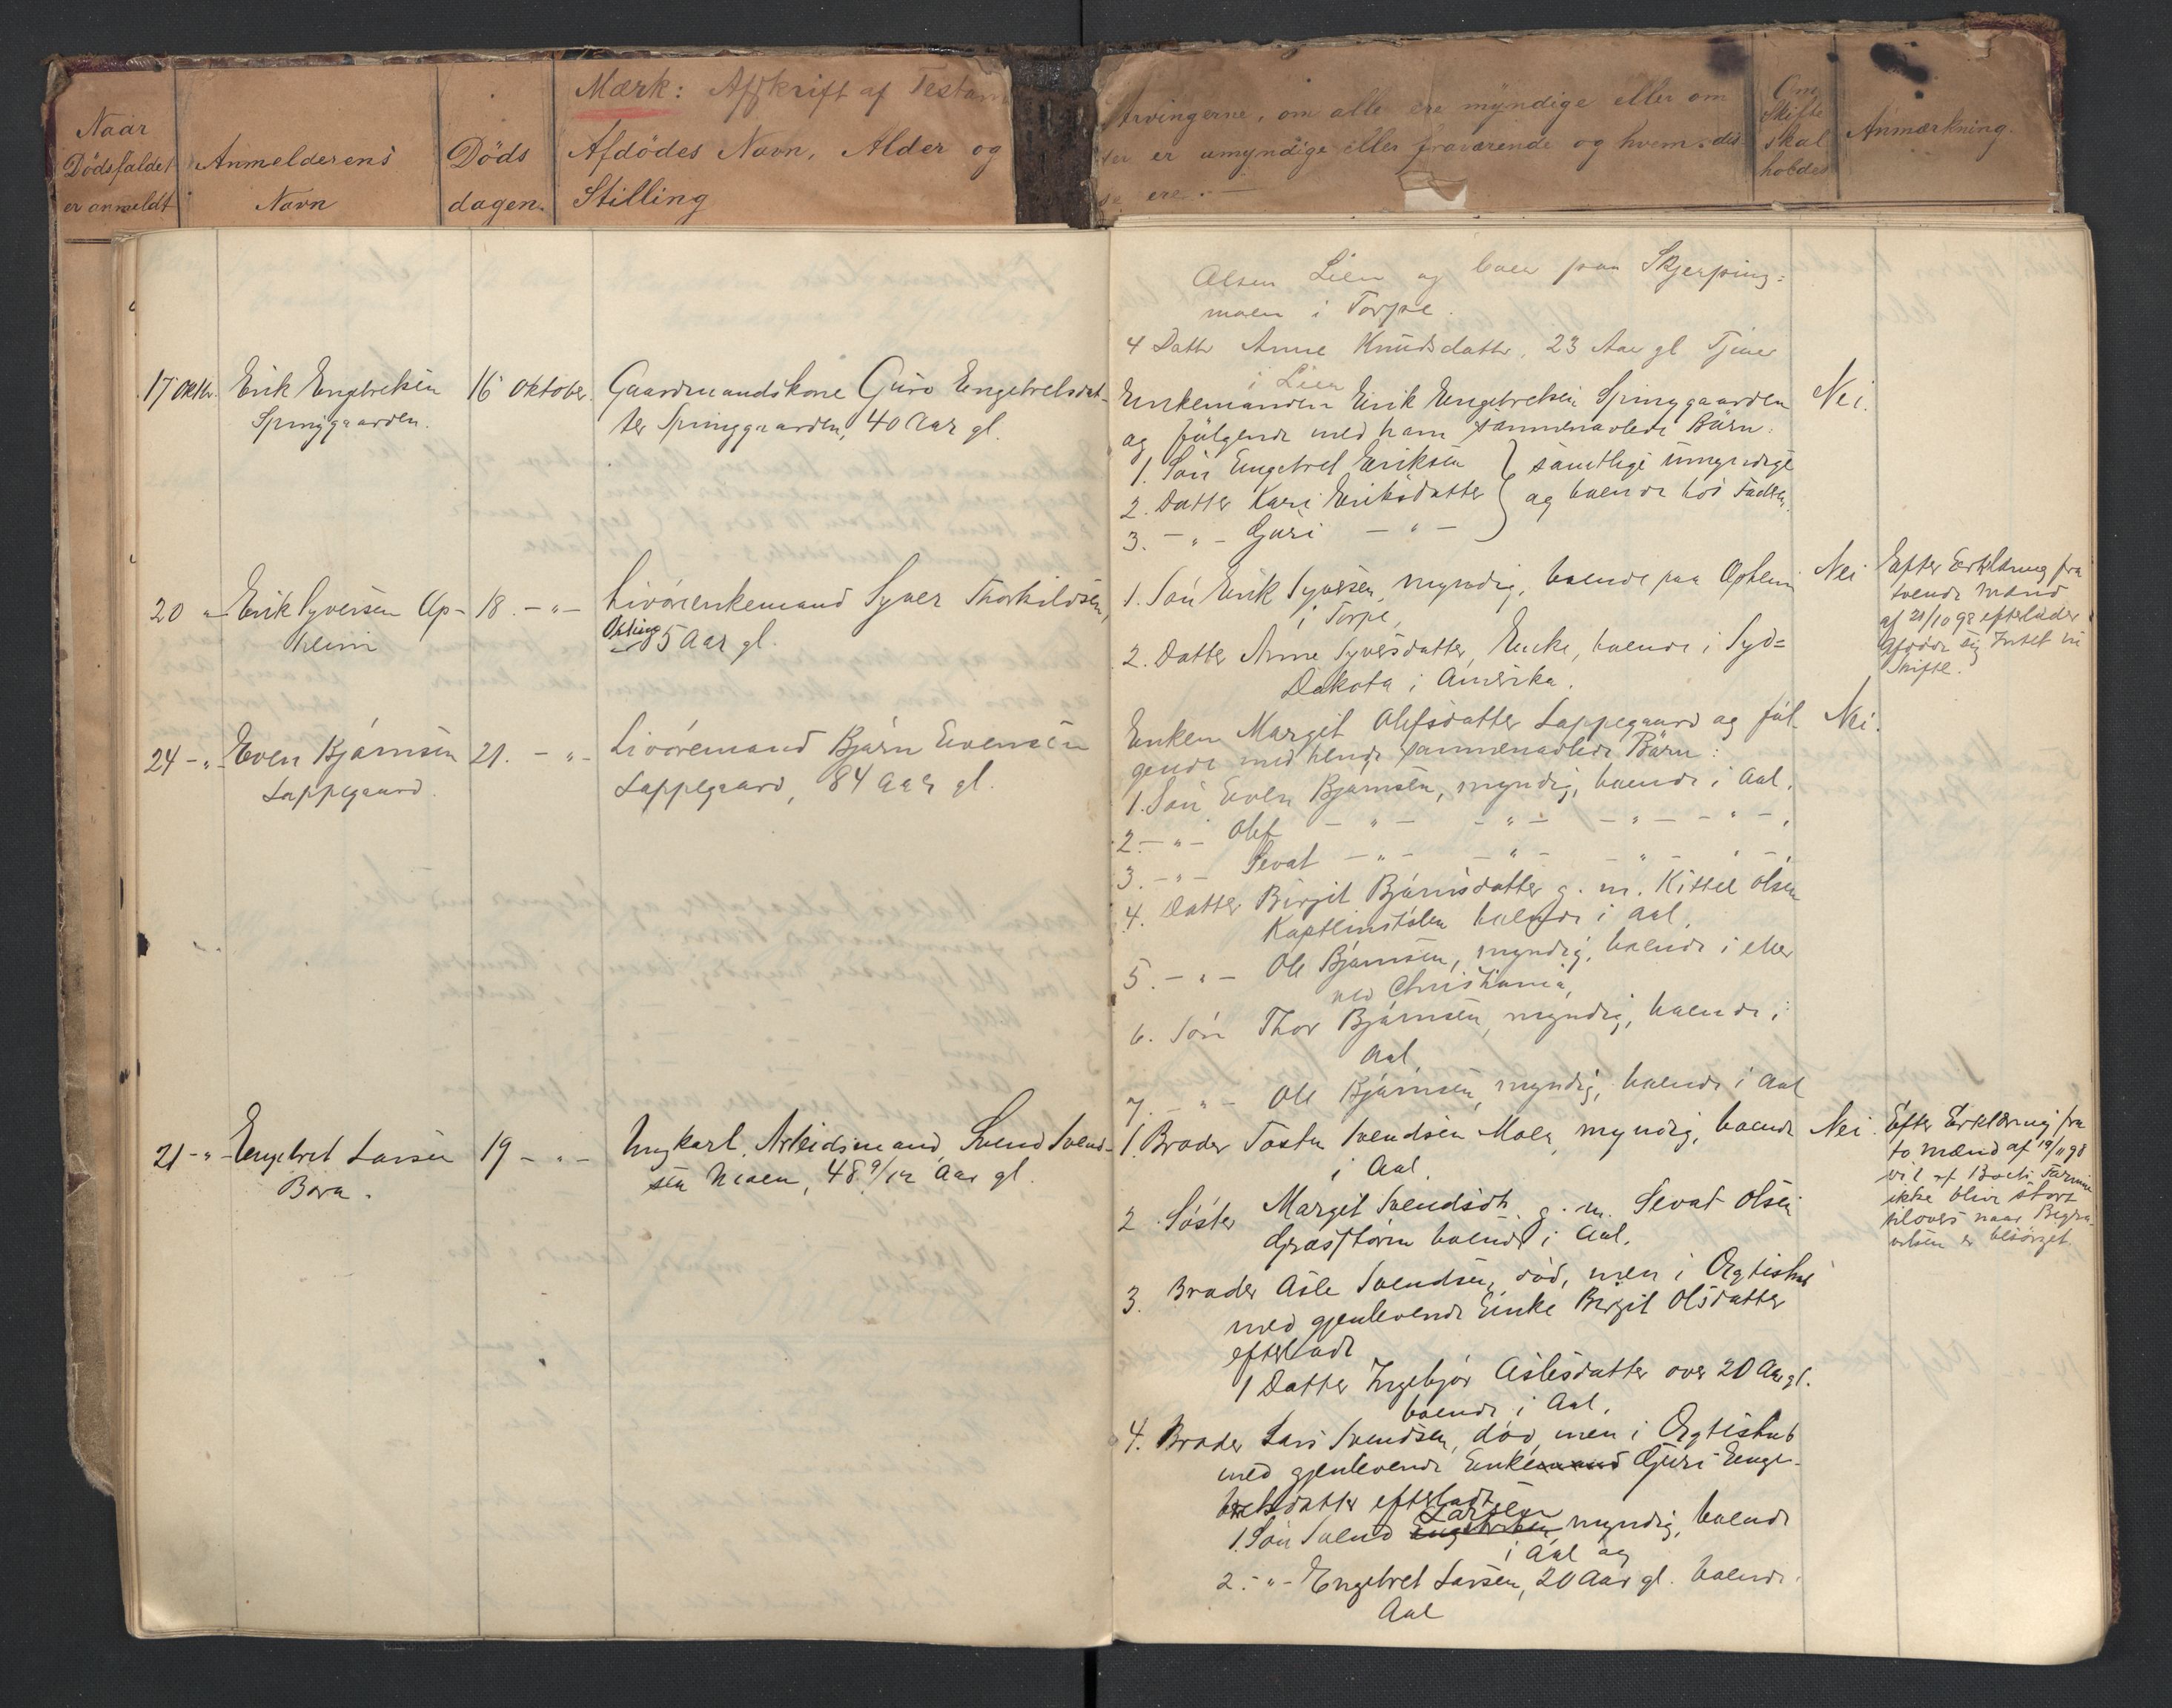 Mærk: Afskrift af Testam
Naar
Dödsfaldet
er anmeldt
Anmelderens
Navn
Döds
dagen.
Afdödes Navn, Alder og
Stilling
Arvingerne, om alle ere myndige eller om
er umyndige eller fraværende og hvem dis-
se ere.
Om
Skifte
skal
holdes
Anmærkning.
Olsen Lien og boer paa Skjerping-
moen i Torpe.
4 Datter Anne Knudsdatter, 23 Aar gl Tjener
i Lien
17 Oktbr. Erik Engebretsen
Springgaarden.
16 Oktober.
Gaardmandskone Guro Engebretsdat-
ter Springgaarden, 40 Aar gl.
Enkemanden Erik Engebretsen Springgaarden
og følgende med ham sammenavlede Børn:
1. Søn Engebret Eriksen } samtlige umyndige
2. Datter Kari Eriksdatter } og boende hos Faderen.
3. - " - Guri - " -
Nei.
20 " Erik Syversen Op-
heim
18. - " -
Livörenkemand Syver Thorkildsen
Opheim
85 Aar gl.
1. Søn Erik Syversen, myndig, boende paa Opheim
i Torpe,
2. Datter Anne Syversdatter, Enke, boende i Syd-
Dakota i Amerika.
Nei
Efter Erklæring fra
tvende Mænd
af 21/10 98 efterlader
Afdøde sig Intet til
Skifte.
24 - " - Even Bjørnsen
Lappegaard.
21. - " -
Livöremand Bjørn Evensen
Lappegaard, 84 Aar gl.
Enken Margit Olefsdatter Lappegaard og føl-
gende med hende sammenavlede Børn:
1. Søn Even Bjørnsen, myndig, boende i Aal.
2. - " - Olef - " - - " - - " - - " -
3. - " - Sevat - " - - " - - " - - " -
4. Datter Birgit Bjørnsdatter g. m. Kittel Olsen
boende i Aal.
5. - " - Ole Bjørnsen, myndig, boende i eller
ved Christiania,
6. Søn Thor Bjørnsen, myndig, boende i
Aal
7. - " - Ole Bjørnsen, myndig, boende i Aal
Nei.
21 - " - Engebret Larsen
19 - " -
Ungkarl, Arbeidsmand, Svend Svend-
sen Moen, 48 9/12 Aar gl.
1. Broder Tosten Svendsen Moen, myndig, boende
i Aal.
2. Søster Margit Svendsdtr. g. m. Sevat Olsen
boende i Aal.
3. Broder Asle Svendsen, død, men i Ægteskab
med gjenlevende Enke Birgit Olsdatter
efterladt
1 Datter Ingebjør Aslesdatter over 20 Aar gl.
boende i Aal.
4. Broder Lars Svendsen, død, men i Ægteskab
med gjenlevende Enkemand Guri Enge-
bretsdatter efterladt
Larsen
1. Søn Svend Engebretsen myndig, boende
i Aal og
2. - " - Engebret Larsen, 20 Aar gl. boende
Aal
Nei
Efter Erklæring fra
to Mænd af 19/11 98
vil af Boets
ikke blive stort
tilovers naar Begra-
velsen er besørget.